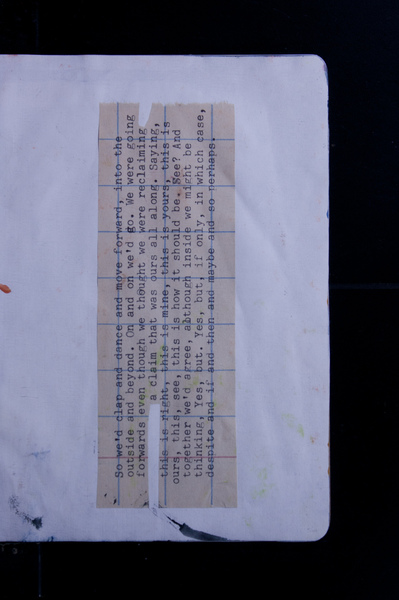 So we'd clap and dance and move forward, into the
outside and beyond. On and on we'd go. We were going
forwards even though we thought we were reclaiming
a claim that was ours all along. Saying,
this is right, this is mine, this is yours, this is
ours, this, see, this is how it should be. See? And
together we'd agree, although inside we might be
thinking, Yes, but. Yes, but, if only, in which case,
despite and if and then and maybe and so perhaps.